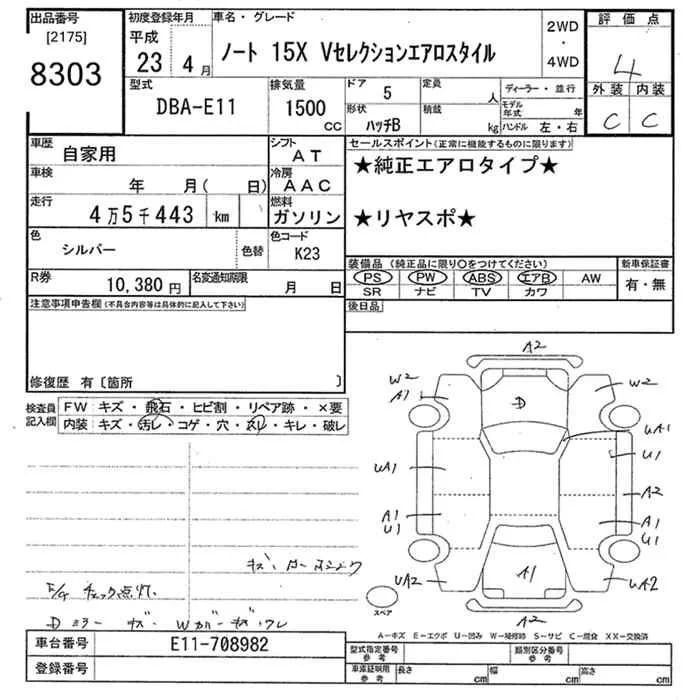 出品番号
[2175]
8303
初度登録年月
平成
23 4月
車名・グレード
ノート 15X Vセレクションエアロスタイル
2WD
・
4WD
評価点
4
外装 内装
C C
型式
DBA-E11
排気量
1500
CC
ドア 5
形状
ハッチB
定員
人
積載
kg
ディーラー・並行
モデル年式 年
ハンドル 左・右
車歴
自家用
シフト
AT
車検
年 月( 日)
冷房
AAC
走行
4万5千443 km
燃料
ガソリン
色
シルバー
色替
色コード
K23
R券
10,380円
名変通知期限
月 日
セールスポイント(正常に機能するものに限ります)
★純正エアロタイプ★
★リヤスポ★
装備品(純正品に限り○をつけてください)
新車保証書
PS PW ABS エアB AW
SR ナビ TV カワ
有・無
後日品
注意事項申告欄(不具合内容等は具体的に記入して下さい)
修復歴 有〔箇所 〕
検査員
記入欄
FW: キズ・飛石・ヒビ割・リペア跡・×要
内装: キズ・汚レ・コゲ・穴・スリ・キレ・破レ
A2
W2
A1
D
W2
UA1
U1
UA1
A2
A1
U1
A1
U1
UA2
A1
UA2
A2
スペア
チェック点灯
Dミラー キズ
A−キズ E−エクボ U−凹み W−補修跡 S−サビ C−腐食 XX−交換済
車台番号
E11-708982
登録番号
型式指定番号
参考
類別区分番号
参考
車庫証明用
参考
長さ cm
幅 cm
高さ cm